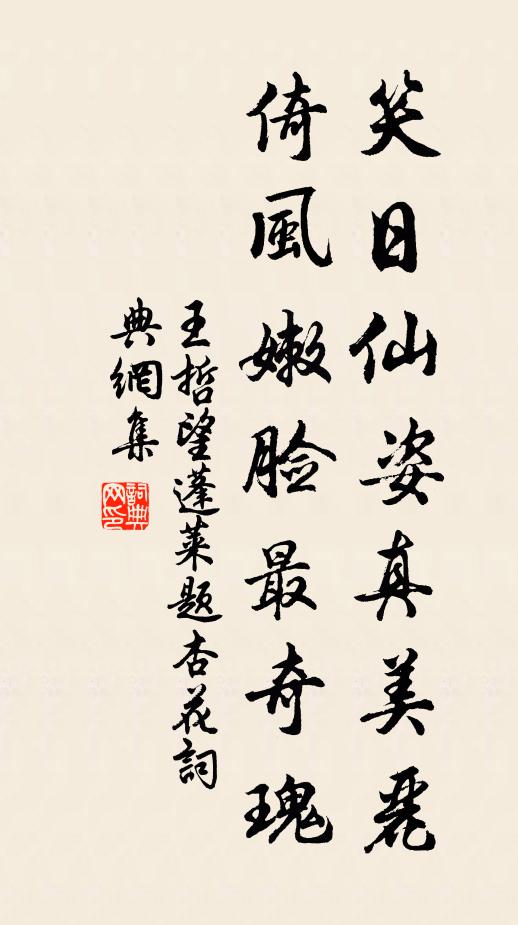 笑日仙姿真美麗
倚風嫩脸最奇瑰
王哲望蓬莱题杏花詞
典網集
詞典
网印